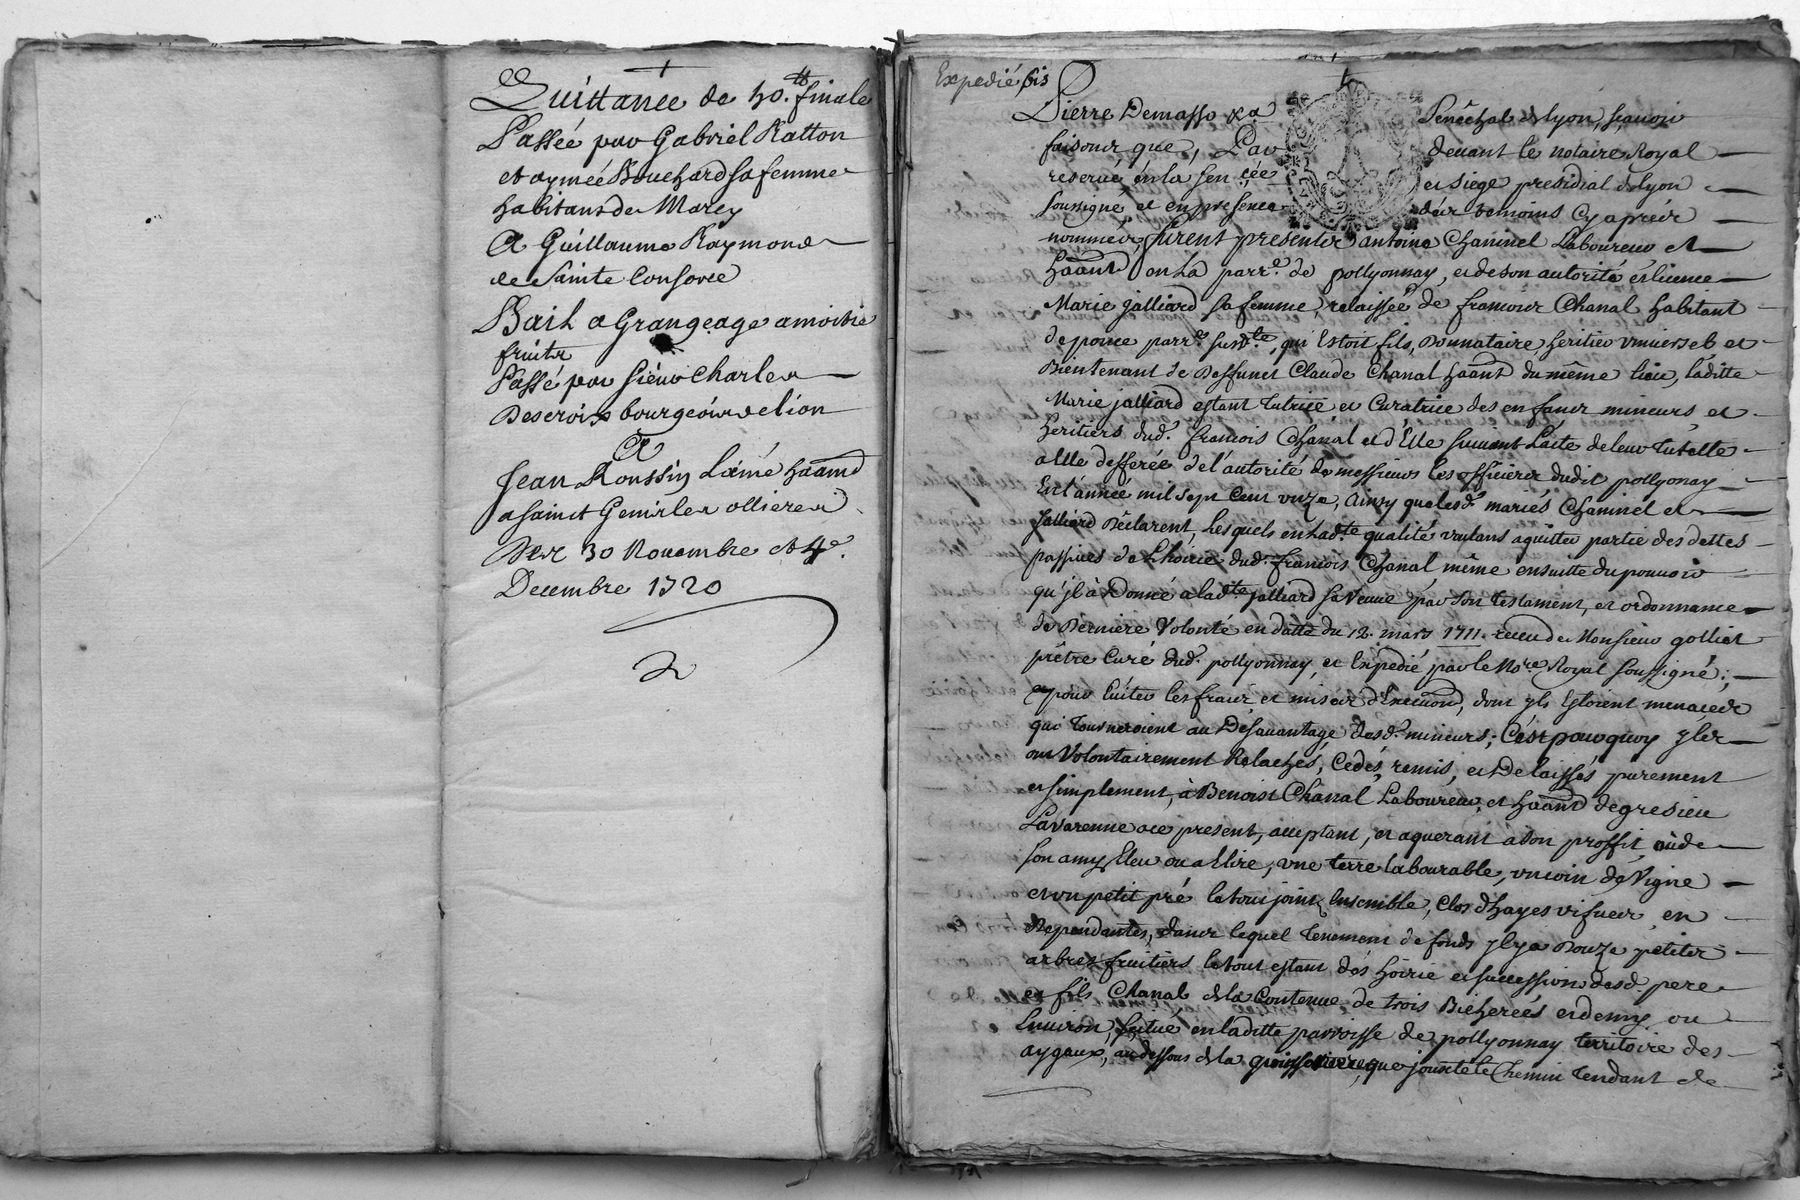 Quittance de 40.tt finale
Passée par Gabriel Ratton
et aymée Bouchard sa femme
habitans de Marcy
A Guillaume Raymond
de Sainte Consorce
Bail a Grangeage a moitié
fruits
Passé par sieur Charles
Descroix bourgeois de lion
A
Jean Roussin L'aîné haant
a saint Genis les ollieres
Des 30 Novembre et 4e.
Decembre 1720
Expedié bis
Pierre Demasso &a Senéchal de lyon, sçavoir
faisons que, Par devant le notaire Royal
reservé en la sen.cée et siege presidial de lyon
soussigné et en presence des temoins cy apres
nommés, furent presents antoine Chaninel Laboureur et
haant en la parr.e de pollyonnay, et de son autorité et licence
Marie jalliard sa femme, relaissée de francois Chanal habitant
de parr.e susd.te, qui Estoit fils, Donnataire, heritier universel et
Bientenant de Deffunct Claude Chanal haant du même lieu, laditte
Marie jalliard estant tutrice et Curatrice des enfans mineurs et
heritiers dud. francois Chanal et d'Elle suivant L'acte de leur tutelle
a Elle defferée de l'autorité de messieurs les officiers dudit pollyonay
En l'année mil sept cent unze, Ainsy que lesd. mariés Chaninel et
Jalliard Déclarent, Lesquels en lad.te qualité voulans aquitter partie des dettes
passives de L'hoirie dud. francois Chanal même ensuitte du pouvoir
qu'jl à Donné a lad.te jalliard sa Veuve par son testament, et ordonnance
de Derniere Volonté en datte du 12. mars 1711. receu de Monsieur golliat
prêtre Curé dud. pollyonnay, et Expedié par le No.re Royal soussigné;
et pour Eviter les fraix et mises d'Execution, dont jls Estoient menacés
qui tourneroient au Désavantage desd. mineurs; C'est pourquoy jls
ont Volontairement Relachés, Cedés, remis, et Delaissés purement
et simplement, à Benoist Chanal Laboureur, et haant de gresieu
Lavarenne a ce present, acceptant, et aquerant a son proffit, ou de
son amy Eleu ou a Elire, une terre labourable, un coin de Vigne
et un petit pré le tout joint Ensemble, Clos d'hayes vifves, en
Dependantes, dans lequel tenement de fonds jl y a Douze petits
arbres fruitiers le tout estant des hoirie et succession desd. pere
et fils Chanal de la Contenue de trois Bicherées et demy ou
Environ, scitué en laditte parroisse de pollyonnay territoire des
aygaux, au dessous de la que jouxte le Chemin tendant de